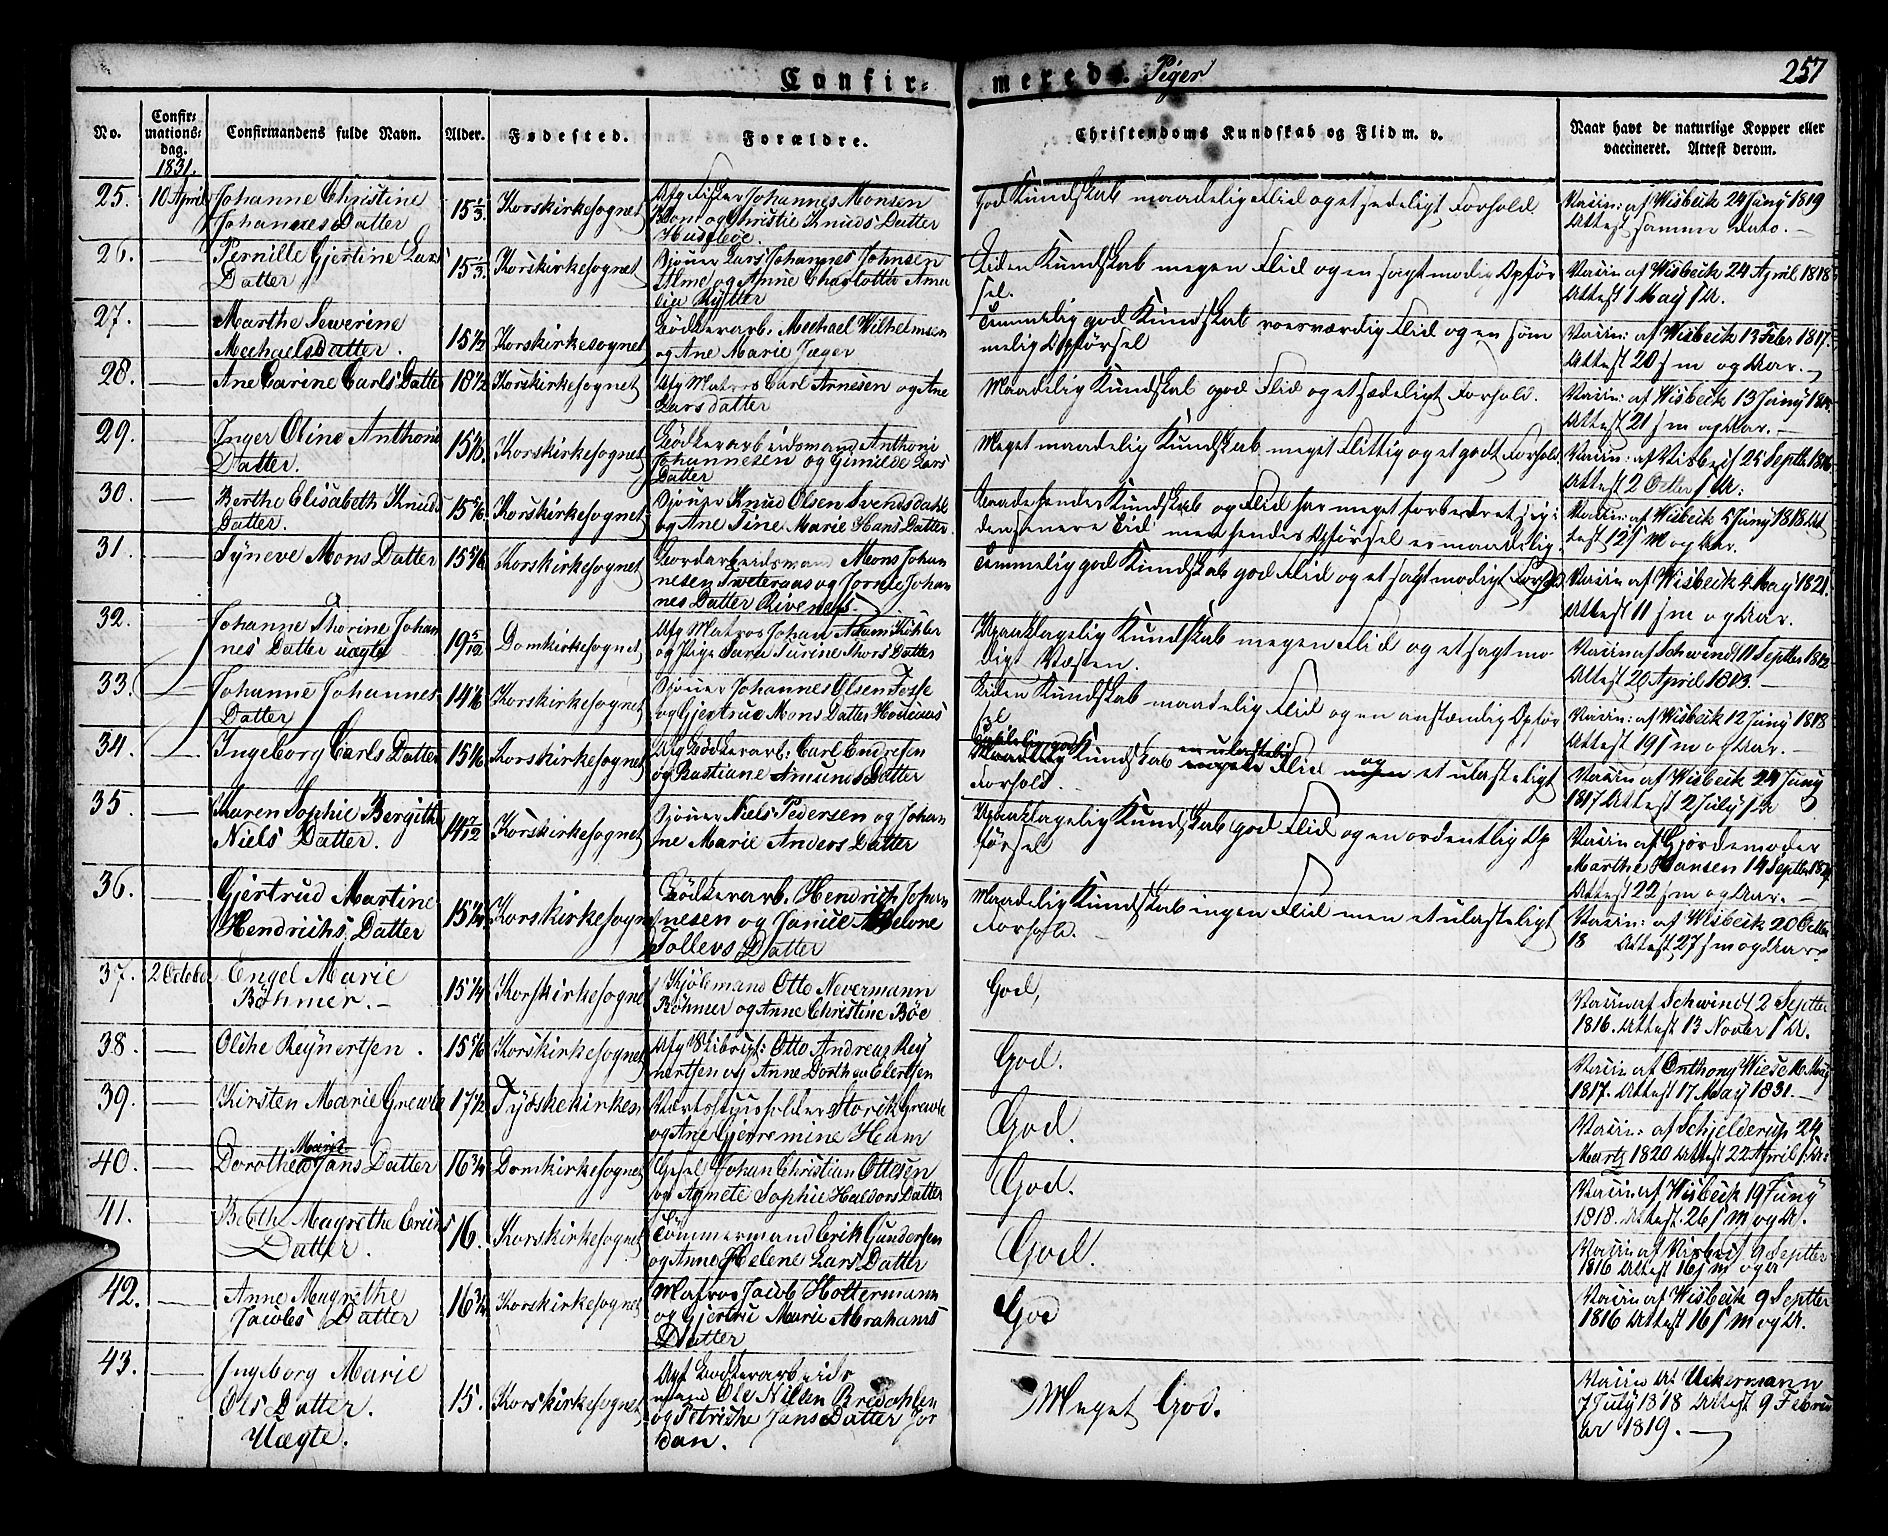 Confir= merede. Piger
257
No.
Confir=
mations=
dag.
1831.
Confirmandens fulde Navn.
Alder.
Fødested.
Forældre.
Christendoms Kundskab og Flid m. v.
Naar havt de naturlige Kopper eller
vaccineret. Attest derom.
25. 10 April Johanne Christine
Johannes Datter
15 1/3 Korskirkesognet
Afg Fisker Johannes Monsen
og Christie Knuds Datter
God Kundskab maadelig Flid og et sædeligt Forhold
Vaccin: af Wisbeck 24 Juny 1819
Attest samme Dato.
26. Pernille Gjertine Lars
Datter
15 1/3 Korskirkesognet
Sjouer Lars Johannes Johnsen
og Anne Charlotte Ama
lia Rytter
Liden Kundskab megen Flid og en sagtmodig Opfør
sel.
Vaccin af Wisbeck 24 April 1818
Attest 1 May s A.
27. Marthe Severine
Mechaelsdatter.
15 1/2 Korskirkesognet
Bødkerarb. Mechael Wilhelmsen
og Ane Marie Jæger
Temmelig god Kundskab roesværdig Flid og en søm
melig Opførsel
Vaccin: af Wisbeck 13 Febr 1817.
Attest 20 s m og Aar.
28. Ane Carine Carls Datter
18 1/2 Korskirkesognet
Afg Matros Carl Arnesen og Ane
Larsdatter
Maadelig Kundskab god Flid og et sædeligt Forhold.
Vaccin: af Wisbeck 13 Juny
Attest 21 s m og Aar.
29. Inger Oline Anthoni
Datter.
Korskirkesognet
Bødkerarbeidsmand Anthoni
Johannesen og Gunilde Lars
Datter
Meget maadelig Kundskab meget flittig og et godt Forhold
Vaccin: af Wisbeck 25 Septbr 1816
Attest 2 Octbr s A:
30. Berthe Elisabeth Knuds
Datter.
15 5/6 Korskirkesognet
Sjouer Knud Olsen Svendsdahl
og Ane Sine Marie Hans Datter
Kundskab og Flid har meget forbedret sig i
den senere Tid men hendes Opførsel er maadelig.
Vaccin: af Wisbeck 5 Juny 1818 At
test 12 s M og Aar.
31. Syneve Mons Datter
15 5/6 Korskirkesognet
Mons Johan
nesen Tveteraas og Johan
nes Datter
Temmelig god Kundskab god Flid og et sagtmodigt Forhold
Vaccin af Wisbeck 4 May 1821.
Attest 11 s m og Aar.
32. Johanne Thorine Johan
nes Datter uægte
19 5/12 Domkirkesognet
Afg Matros Johan Adam Köhler
og Pige Sara Surine Thors Datter
Upaaklagelig Kundskab megen Flid og et sagtmo
digt Væsten.
Vaccin af Schwindt 11 Septbr 1812
Attest 20 April 1813.
33. Johanne Johannes
Datter
14 1/6 Korskirkesognet
Sjouer Johannes Olsen Fosse
og Gjertrud Mons Datter
Liden Kundskab maadelig Flid og en anstændig Opfør
sel
Vaccin: af Wisbeck 12 Juny 1818
Attest 19 s m og Aar.
34. Ingeborg Carls Datter
15 1/6 Korskirkesognet
Afg Bødkerarb: Carl Endresen
og Bastiane Amunds Datter
Kundskab Flid og et ulasteligt
Forhold.
Vaccin af Wisbeck 24 Juny
1817 Attest 2 July s A
35. Karen Sophie Bergithe
Niels Datter.
14 7/12 Korskirkesognet
Sjouer Niels Pedersen og Johan
ne Marie Anders Datter
Upaaklagelig Kundskab god Flid og en ordentlig Op
førsel
Vaccin af Gjordemoder
Marthe Hansen 14 Septbr
Attest 22 s m og Aar.
36. Gjertrud Martine
Hendrichs Datter
Korskirkesogn
Bødkerarb. Hendrich Johan
nesen og
Tollevs Datter
Maadelig Kundskab ingen Flid men et ulasteligt
Forhold.
Vaccin: af Wisbeck 20 Octbr
18 Attest 27 s m og Aar.
37. 2 October Engel Marie
Bøhmer.
15 1/4 Korskirkesogne
Otto Nevermann
Bøhmer og Anne Christine Bøe
God,
Vaccin af Schwindt 2 Septbr
1816. Attest 13 Novbr s A.
38. Olche Reynertsen.
15 5/6 Korskirkesognet
Otto Andreas Rey
nertsen og Anne Dorthea Elertsen
God.
Vaccin af Anthony Wiese
1817. Attest 17 May 1831.
39. Kirsten Marie Greave
17 1/2 Tydskekirken
Værtshuusholder Storik Greave
og Ane Gjerremine Ham
God.
Vaccin: af Schjelderup 24
Marts 1820 Attest 22 April s A:
40. Dorothea Marie Jans Datter
16 3/4 Domkirkesognet
Johan Christian Ottesen
og Agnete Sophie Haldors Datter
God.
Vaccin af Wisbeck 19 Juny
1818. Attest 26 s M og A.
41. Berthe Magrethe Erichs
Datter.
16. Korskirkesognet
Tømmermand Erik Gundersen
og Anne Helene Lars Datter
God.
Vaccin af Wisbeck 9 Septbr
1816 Attest 16 s m og A
42. Anne Magrethe
Jacobs Datter
16 3/4 Korskirkesognet
Matros Jacob Holtermann
og Gjertrud Marie Abrahams
Datter
God
Vaccin af Wisbeck 9 Septbr
1816 Attest 16 s M og A.
43. Ingeborg Marie
Ols Datter.
Uægte.
15. Korskirkesognet
Afg Bødkerarbeids
mand Ole Nilsen Bredahlen
og Petriche Jans Datter Jor
dan.
Meget God.
Vaccin af Uckermann
7 July 1818 Attest 9 Febru
ar 1819.